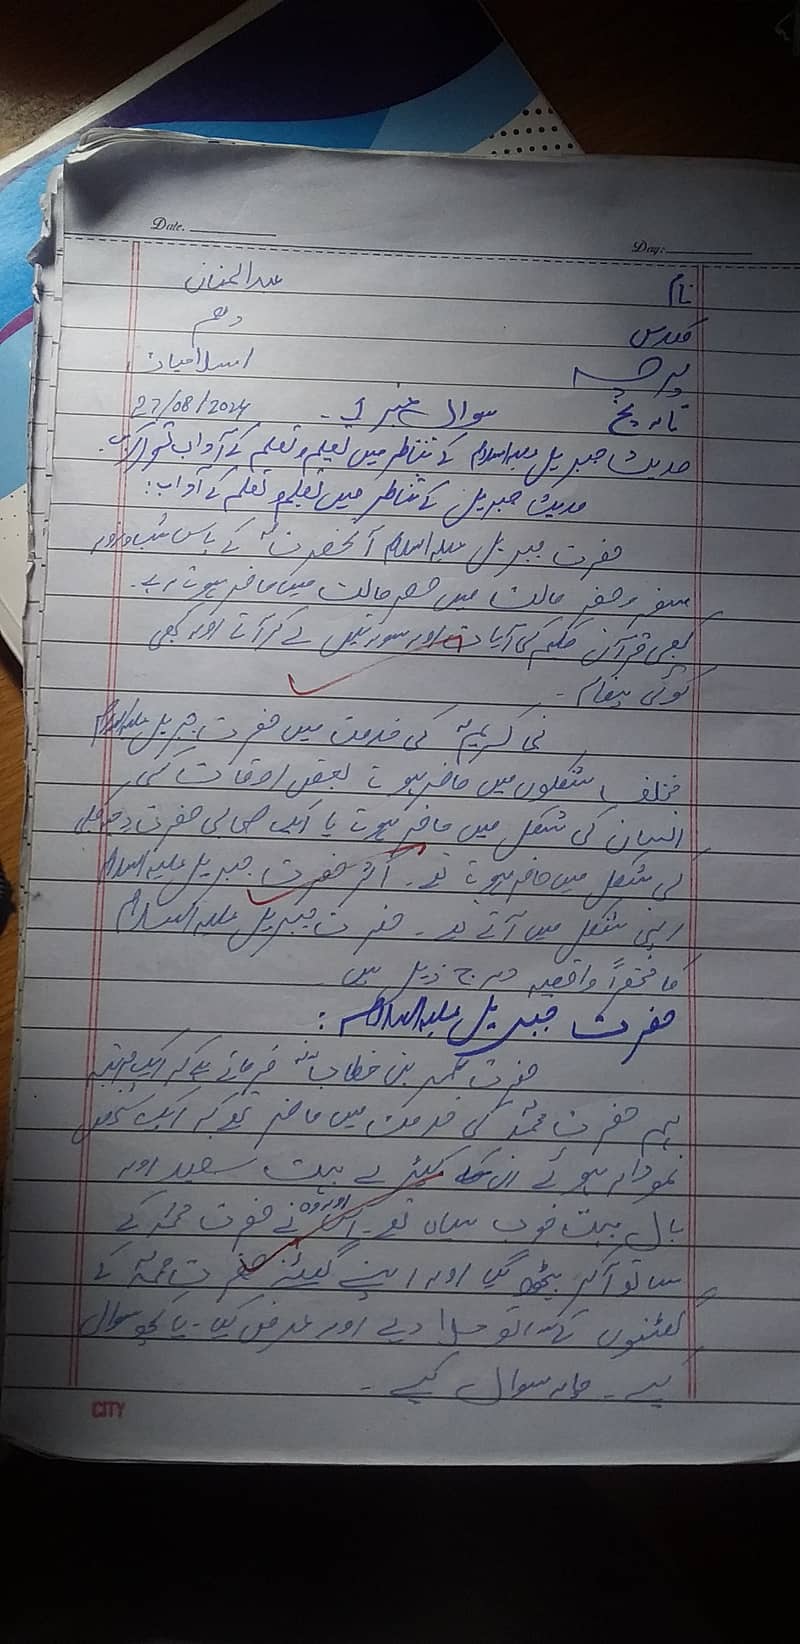 Date.
Day:
نام عبدالمنان
کلاس دہم
پرچہ اسلامیات
تاریخ سوال نمبر 1۔ 27/08/2024
حدیث جبریل علیہ السلام کے تناظر میں تعلیم و تعلم کے آداب تحریر کریں۔
حدیث جبریل کے تناظر میں تعلیم و تعلم کے آداب:
حضرت جبریل علیہ السلام آنحضرتؐ کے پاس شب و روز
سفر و حضر حالت میں حاضر ہوتے رہے۔
کبھی قرآن حکیم کی آیات اور سورتیں لے کر آتے اور کبھی
کوئی پیغام۔
نبی کریمؐ کی خدمت میں حضرت جبریل علیہ السلام
مختلف شکلوں میں حاضر ہوتے بعض اوقات کسی
انسان کی شکل میں حاضر ہوتے یا ایک صحابی حضرت دحیہ کلبی
کی شکل میں حاضر ہوتے تھے۔ اکثر حضرت جبریل علیہ السلام
اپنی شکل میں آتے تھے۔ حضرت جبریل علیہ السلام
کا مختصراً واقعیہ درج ذیل ہیں۔
حضرت جبریل علیہ السلام:
حضرت عمر بن خطابؓ فرماتے ہے کہ ایک مرتبہ
ہم حضرت محمدؐ کی خدمت میں حاضر تھے کہ ایک شخص
نمودار ہوئے ان کے کپڑے بہت سفید اور
بال بہت خوب سیاہ تھے۔ اور وہ حضرت محمدؐ کے
ساتھ آکر بیٹھ گیا اور اپنے گھٹنے حضرت محمدؐ کے
گھٹنوں کے ساتھ ملا دیے اور عرض کیا۔ یا کچھ سوال
کیے۔ چار سوال کیے۔
CITY